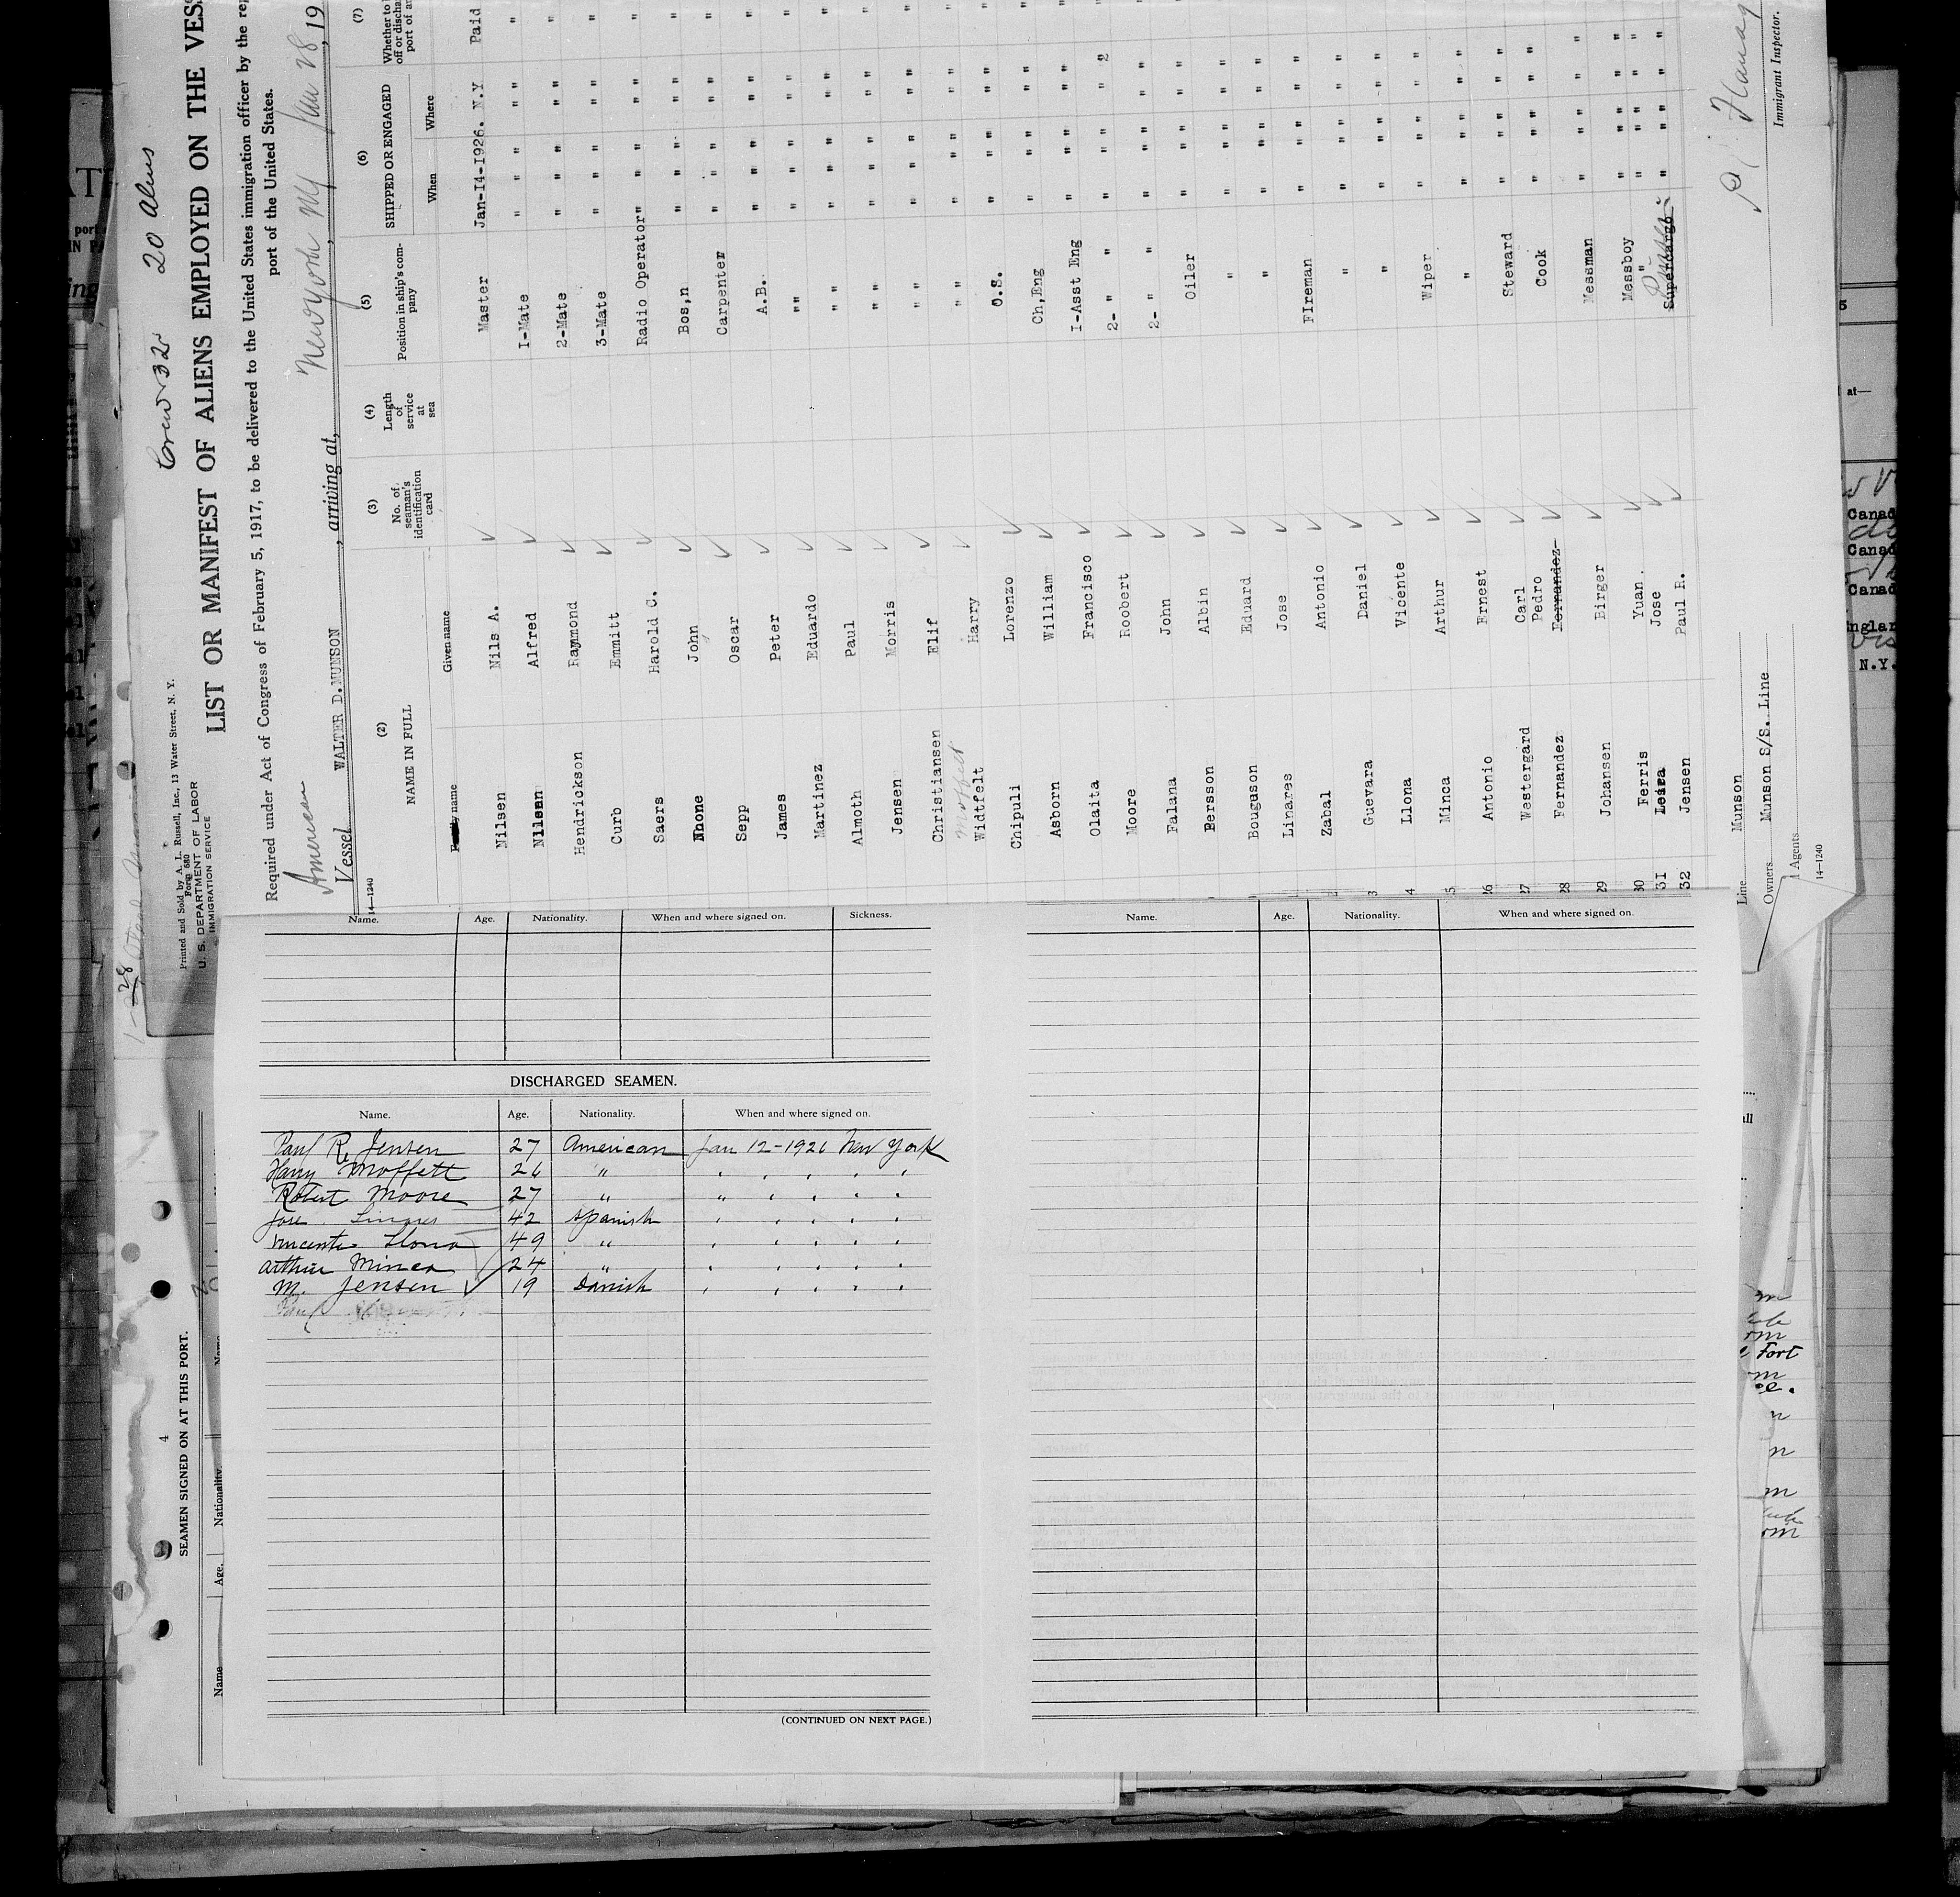 Crew 32 20 Aliens
Printed and Sold by A. L. Russell, Inc., 13 Water Street, N. Y.
Form 680
U. S. DEPARTMENT OF LABOR
IMMIGRATION SERVICE
LIST OR MANIFEST OF ALIENS EMPLOYED ON THE VES
Required under Act of Congress of February 5, 1917, to be delivered to the United States immigration officer by the re
port of the United States.
American
Vessel WALTER D. MUNSON, arriving at, New York, NY Jan 28, 19
14—1240
(2) (3) (4) (5) (6) (7)
NAME IN FULL No. of seaman's identification card Length of service at sea Position in ship's company SHIPPED OR ENGAGED
Given name When Where
Nilsen Nils A. Master Jan-14-1926. N.Y Paid
Nilsen Alfred 1-Mate " " " "
Hendrickson Raymond 2-Mate " " " "
Curb Emmitt 3-Mate " " " "
Saers Harold C. Radio Operator " " " "
Nhone John Bos,n " " " "
Sepp Oscar Carpenter " " " "
James Peter A.B. " " " "
Martinez Eduardo " " " " " "
Almoth Paul " " " " " "
Jensen Morris " " " " " "
Christiansen Elif " " " " " "
Moffett
Widtfelt Harry " " " " " "
Chipuli Lorenzo O.S. " " " "
Asborn William Ch,Eng " " " "
Olaita Francisco I-Asst Eng " " " "
Moore Roobert 2- " " " " " 2
Falana John 2- " " " " " "
Bersson Albin Oiler " " " "
Bouguson Eduard " " " " "
Linares Jose " " " " "
Zabal Antonio FIreman " " " "
Guevara Daniel " " " " "
Llona Vicente " " " " "
Minca Arthur Wiper " " " "
26 Antonio Ernest " " " " "
27 Westergard Carl Steward " " " "
28 Fernandez Pedro Fernandez Cook " " " "
29 Johansen Birger Messman " " " "
30 Ferris Yuan. Messboy " " " "
31 Leira Jose " " " " "
32 Jensen Paul R. Supercargo Purser " " " "
Line Munson
Owners Munson S/S. Line
Agents
14—1240
Immigrant Inspector.
Name. Age. Nationality. When and where signed on. Sickness.
DISCHARGED SEAMEN.
Name. Age. Nationality. When and where signed on.
Paul R. Jensen 27 American Jan 12-1926 New York
Harry Moffett 26 " " " " " "
Robert Moore 27 " " " " " "
Jose Linares 42 Spanish " " " " "
Vincente Llona 49 " " " " " "
Arthur Minca 24 " " " " " "
M. Jensen 19 Danish " " " " "
(CONTINUED ON NEXT PAGE.)
Name. Age. Nationality. When and where signed on.
4
SEAMEN SIGNED ON AT THIS PORT.
Name Age. Nationality.
Canad
Canad
Canad
N.Y.
Fort